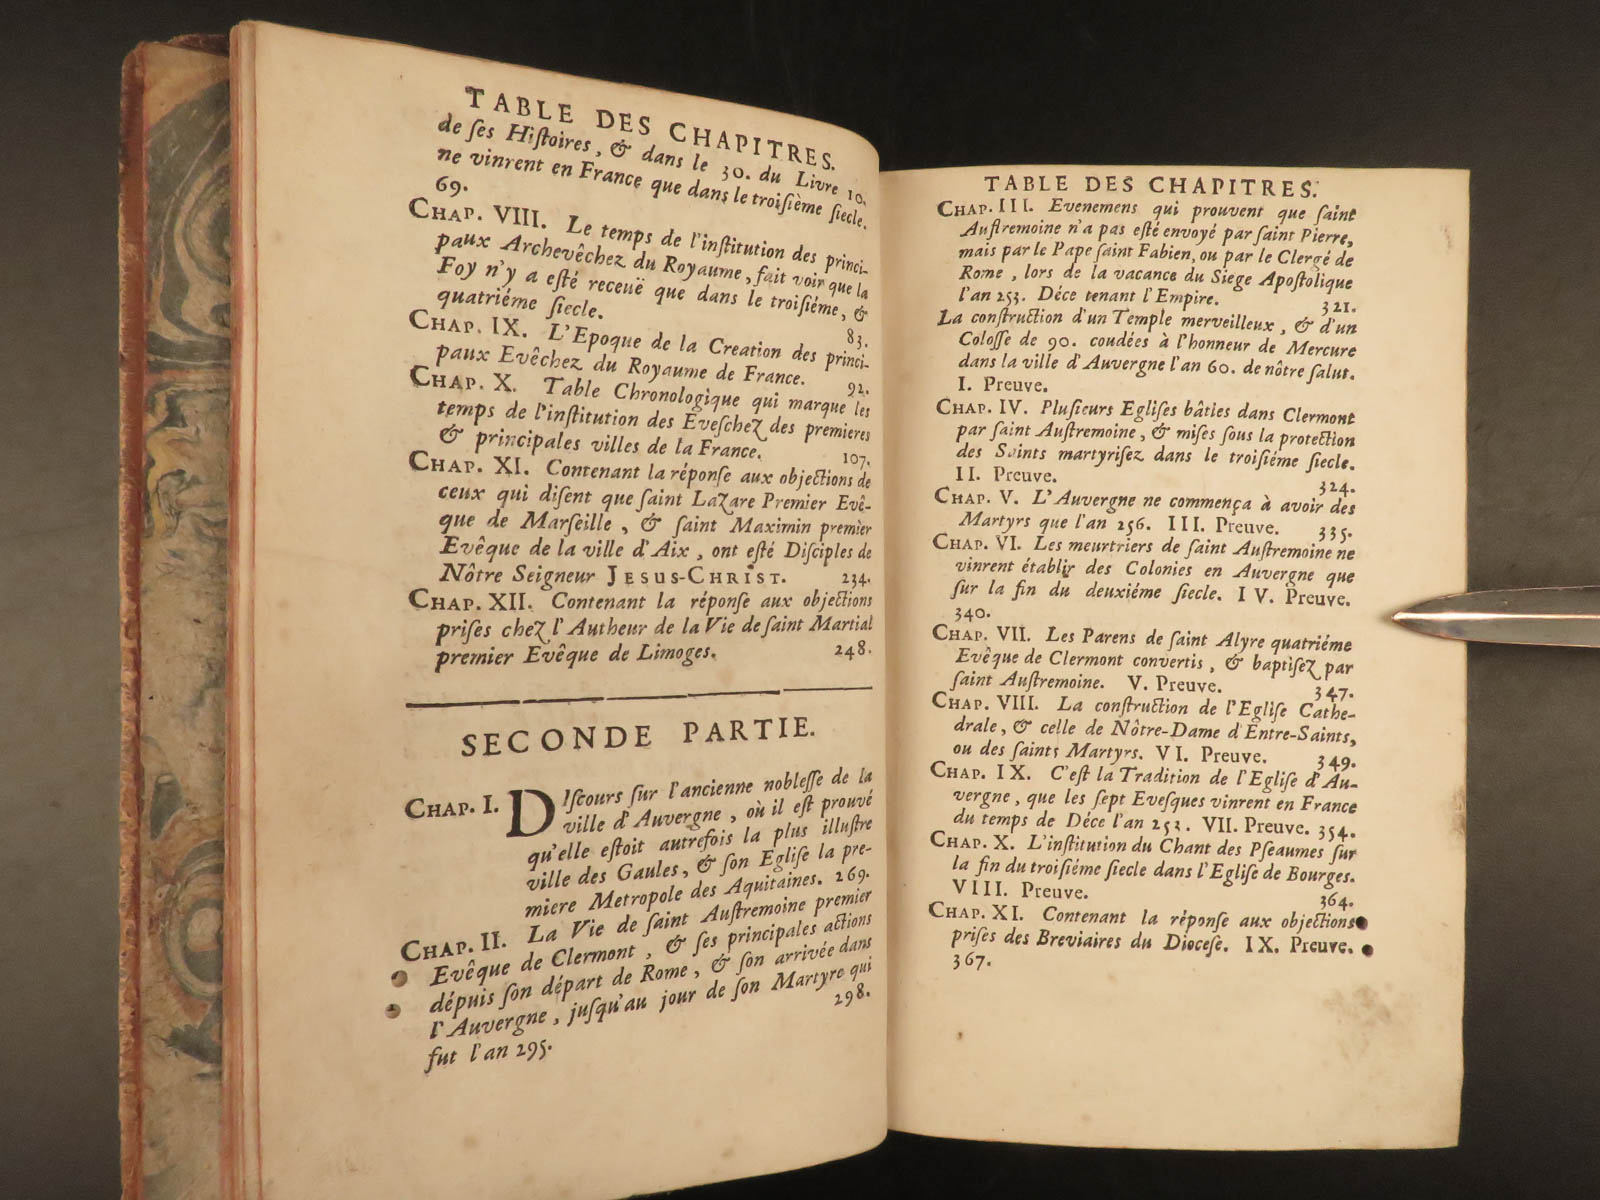 TABLE DES CHAPITRES.
de ſes Hiſtoires, & dans le 30. du Livre 10.
ne vinrent en France que dans le troiſième ſiecle.
69.
CHAP. VIII. Le temps de l'inſtitution des princi-
paux Archevêchez du Royaume, fait voir que la
Foy n'y a eſté receuë que dans le troiſiéme, &
quatriéme ſiecle. 83.
CHAP. IX. L'Epoque de la Creation des princi-
paux Evêchez du Royaume de France. 92.
CHAP. X. Table Chronologique qui marque les
temps de l'inſtitution des Eveſchez des premieres
& principales villes de la France. 107.
CHAP. XI. Contenant la réponſe aux objections de
ceux qui diſent que ſaint Lazare Premier Evê-
que de Marſeille, & ſaint Maximin premier
Evêque de la ville d'Aix, ont eſté Diſciples de
Nôtre Seigneur JESUS-CHRIST. 234.
CHAP. XII. Contenant la réponſe aux objections
priſes chez l'Autheur de la Vie de ſaint Martial
premier Evêque de Limoges. 248.
SECONDE PARTIE.
CHAP. I. DIſcours ſur l'ancienne nobleſſe de la
ville d'Auvergne, où il eſt prouvé
qu'elle eſtoit autrefois la plus illuſtre
ville des Gaules, & ſon Egliſe la pre-
miere Metropole des Aquitaines. 269.
CHAP. II. La Vie de ſaint Auſtremoine premier
Evêque de Clermont, & ſes principales actions
dépuis ſon départ de Rome, & ſon arrivée dans
l'Auvergne, juſqu'au jour de ſon Martyre qui
fut l'an 295. 298.
TABLE DES CHAPITRES.
CHAP. III. Evenemens qui prouvent que ſaint
Auſtremoine n'a pas eſté envoyé par ſaint Pierre,
mais par le Pape ſaint Fabien, ou par le Clergé de
Rome, lors de la vacance du Siege Apoſtolique
l'an 253. Déce tenant l'Empire. 321.
La conſtruction d'un Temple merveilleux, & d'un
Coloſſe de 90. coudées à l'honneur de Mercure
dans la ville d'Auvergne l'an 60. de nôtre ſalut.
I. Preuve.
CHAP. IV. Pluſieurs Egliſes bâties dans Clermont
par ſaint Auſtremoine, & miſes ſous la protection
des Saints martyriſez dans le troiſiéme ſiecle.
II. Preuve. 324.
CHAP. V. L'Auvergne ne commença à avoir des
Martyrs que l'an 256. III. Preuve. 335.
CHAP. VI. Les meurtriers de ſaint Auſtremoine ne
vinrent établir des Colonies en Auvergne que
ſur la fin du deuxiéme ſiecle. IV. Preuve.
340.
CHAP. VII. Les Parens de ſaint Alyre quatriéme
Evêque de Clermont convertis, & baptiſez par
ſaint Auſtremoine. V. Preuve. 347.
CHAP. VIII. La conſtruction de l'Egliſe Cathe-
drale, & celle de Nôtre-Dame d'Entre-Saints,
ou des ſaints Martyrs. VI. Preuve. 349.
CHAP. IX. C'eſt la Tradition de l'Egliſe d'Au-
vergne, que les ſept Eveſques vinrent en France
du temps de Déce l'an 253. VII. Preuve. 354.
CHAP. X. L'inſtitution du Chant des Pſeaumes ſur
la fin du troiſiéme ſiecle dans l'Egliſe de Bourges.
VIII. Preuve. 364.
CHAP. XI. Contenant la réponſe aux objections
priſes des Breviaires du Dioceſe. IX. Preuve.
367.